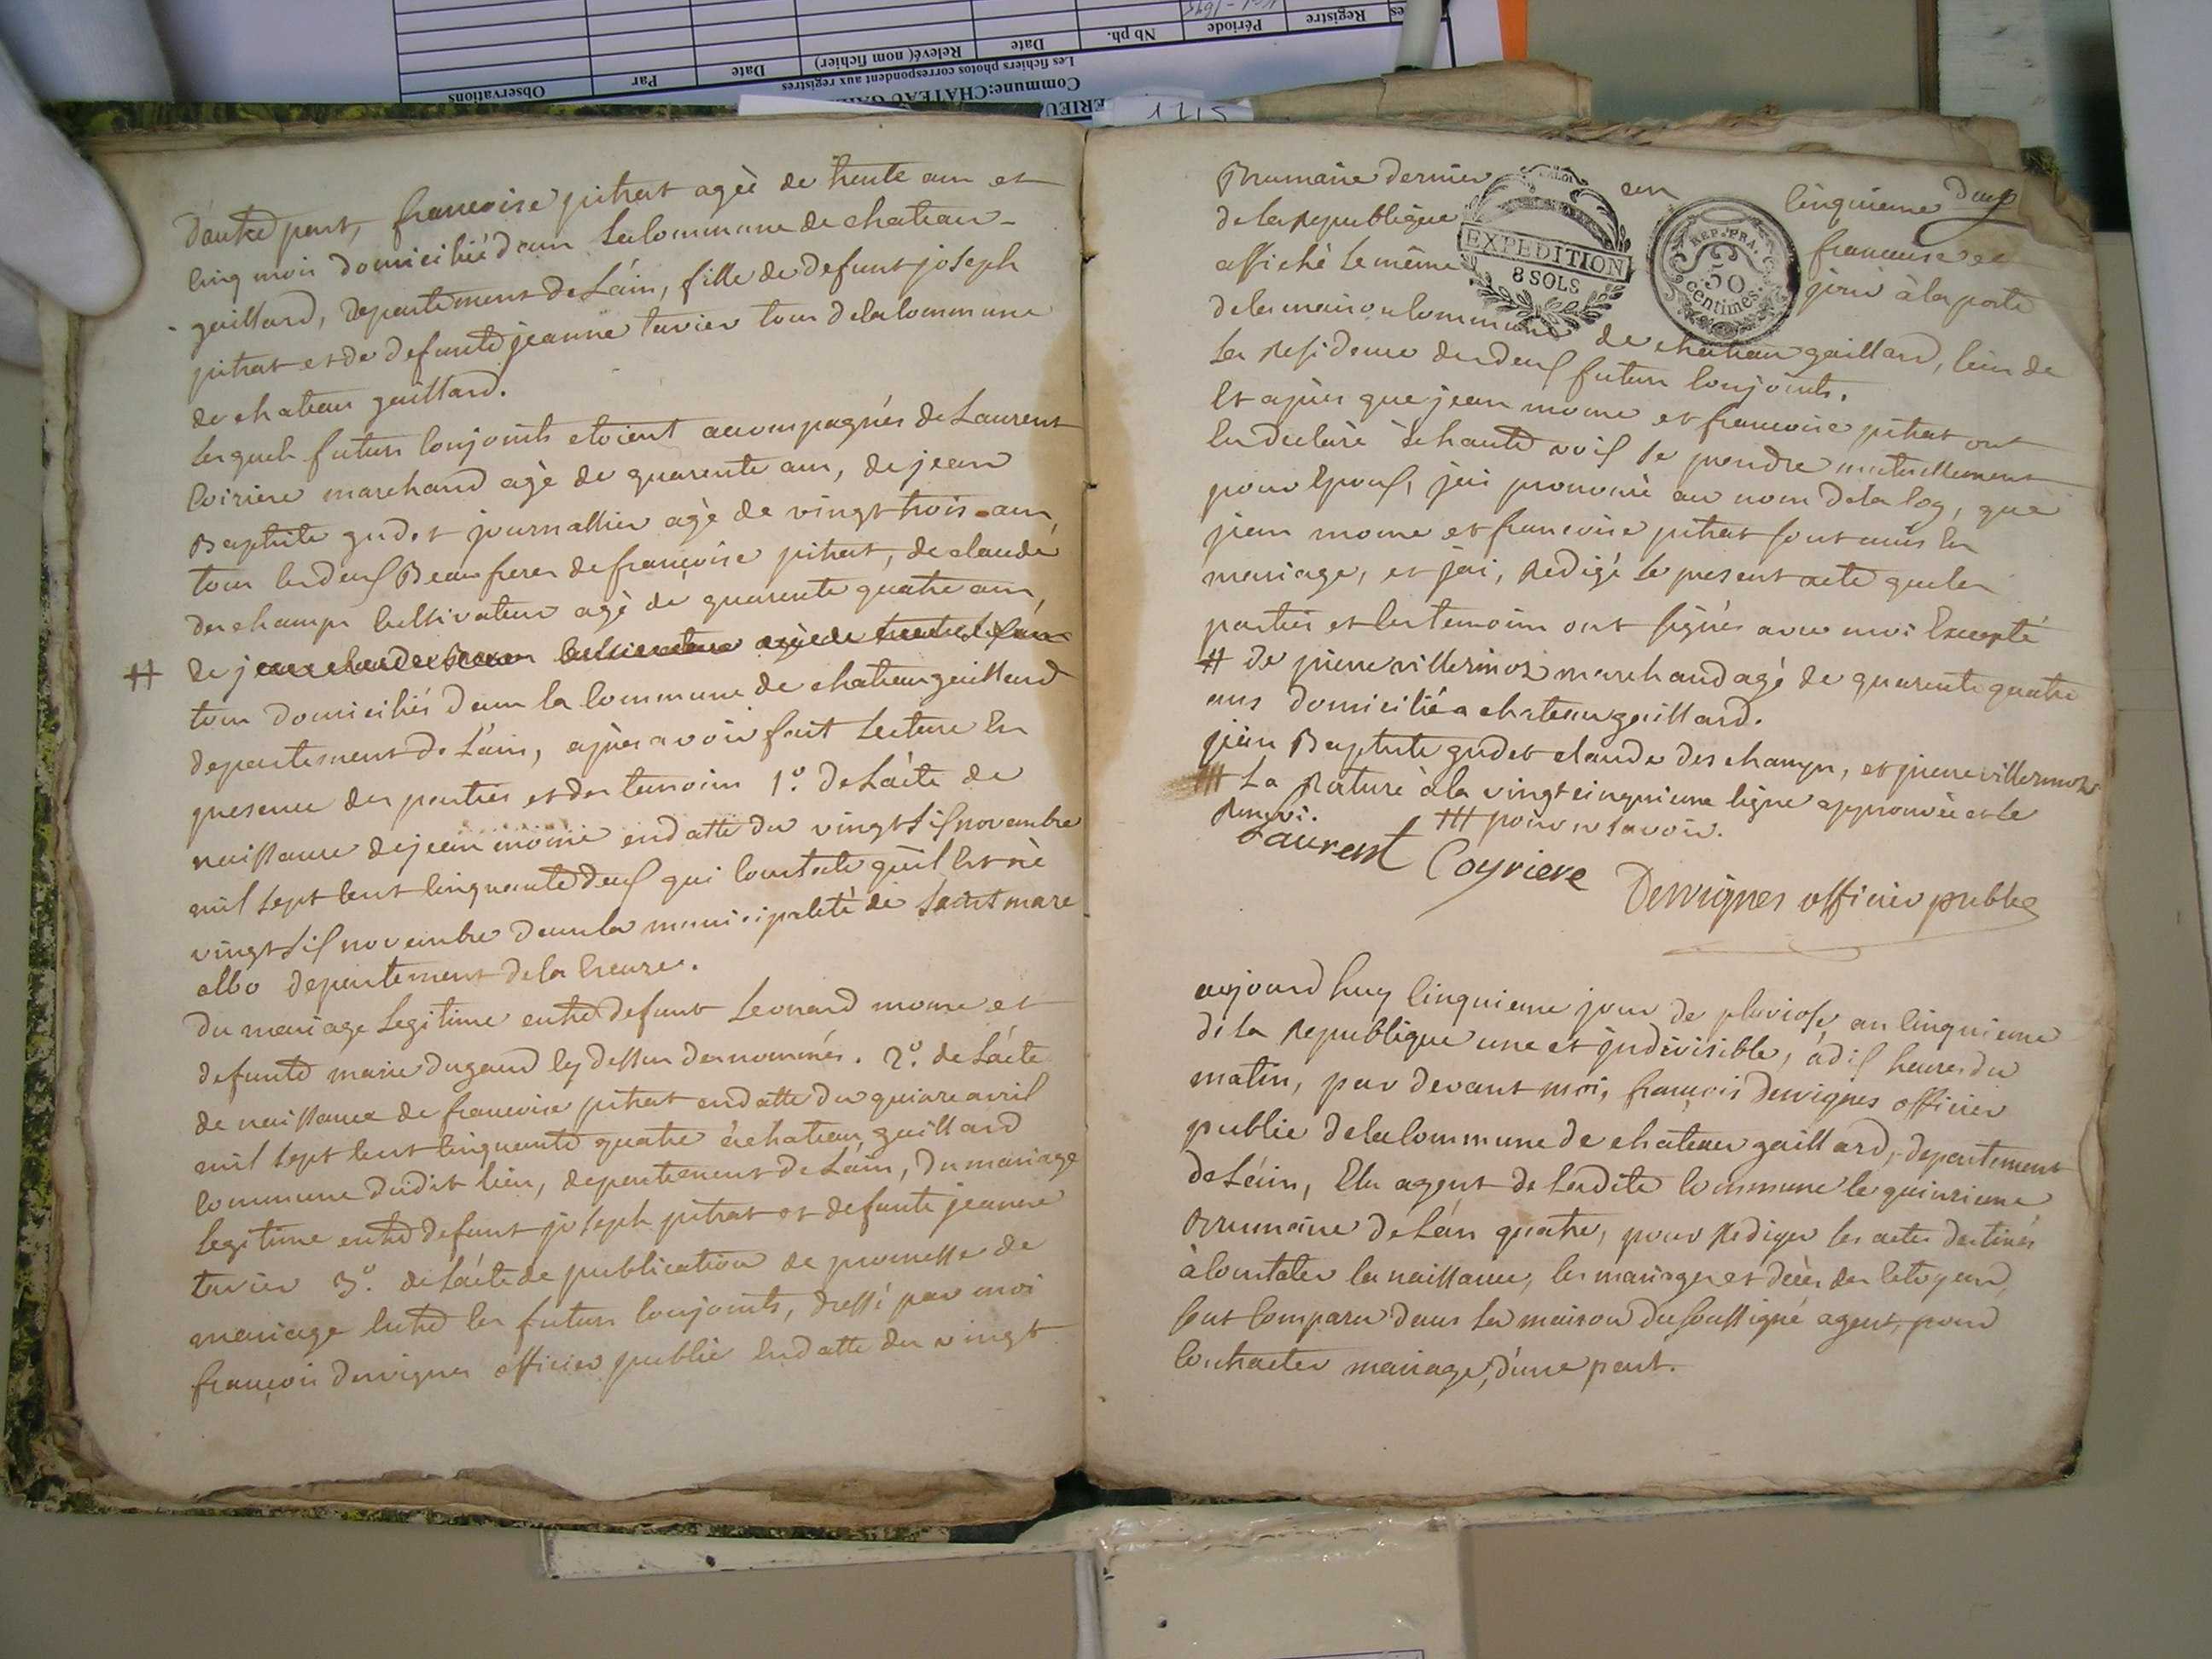 Observations
Par
Date
Relevé( nom fichier)
Date
Nb ph.
Période
Registre
Les fichiers photos correspondent aux registres
Commune:CHATEAU GAI
ERIEU
1715
d'autre part, francoise pitrat agée de trente ans et
cinq mois domiciliée dans la commune de chateau-
gaillard, departement de L'ain, fille de defunt joseph
pitrat et de defunte jeanne tavier tous de la commune
de chateau gaillard.
Lesquels futurs conjoints etoient accompagnés de Laurent
Coiriere marchand agé de quarente ans, de jean
Baptiste gudet journallier agé de vingt trois ans,
tous les deux Beaufreres de françoise pitrat, de claude
deschamps cultivateur agé de quarente quatre ans,
# de j
tous domiciliés dans la commune de chateaugaillard
departement de L'ain, après avoir fait Lecture en
presence des parties et des temoins 1.º de L'acte de
naissance de jean moine en datte du vingt six novembre
mil sept cent cinquante deux qui constate qu'il est né
vingt six novembre dans la municipalité de saint marc
albo departement de la Creuse.
du mariage Legitime entre defunt Leonard moine et
defunte marie dugaud cy dessus denommés. 2.º de L'acte
de naissance de francoise pitrat en datte du quinze avril
mil sept cent cinquante quatre à chateau gaillard
commune dudit lieu, departement de L'ain, du mariage
Legitime entre defunt joseph pitrat et defunte jeanne
tavier 3.º de L'acte de publication de promesse de
mariage entre les futurs conjoints, dressé par moi
françois Dervignes officier public en datte du vingt
Brumaire dernier an cinquieme
de la Republique francaise et
affiché le même jour à la porte
EXPEDITION
8 SOLS
REP. FRA.
50
centimes.
de la maison commune de chateau gaillard, lieu de
La Residence des deux futurs conjoints.
Et après que jean moine et francoise pitrat ont
eu declaré à haute voix se prendre mutuellement
pour epoux, j'ai prononcé au nom de la loy, que
jean moine et francoise pitrat sont unis en
mariage, et j'ai, Redigé le present acte que les
parties et les temoins ont signés avec moi Excepté
# de pierre villermoz marchand agé de quarente quatre
ans domicilié a chateaugaillard.
jean Baptiste gudet claude deschamps, et pierre villermoz
## La Rature à la vingt cinquieme ligne approuvée et le
Renvi. ## pour ne savoir.
Laurent Coyriere Dervignes officier public
aujourd huy cinquieme jour de pluviose, an cinquieme
de la Republique une et indivisible, à dix heures du
matin, par devant moi, françois Dervignes officier
public de la commune de chateau gaillard, departement
de L'ain, Elu agent de Ladite Commune le quinzieme
Brumaire de L'an quatre, pour Rediger les actes destinés
à constater la naissance, les mariages et décès des Citoyens,
sont comparu dans la maison du soussigné agent, pour
contracter mariage, d'une part.